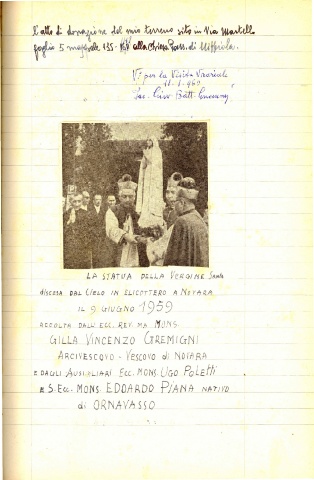 L'atto di donazione del mio terreno sito in Via Martello
foglio 5 mappale 135 alla Chiesa Parr. di
V° per la Visita Vicariale
11-1-960
Sac.
LA STATUA DELLA VERGINE Santa
discesa dal Cielo in Elicottero a NOVARA
IL 9 GIUGNO 1959
ACCOLTA DALL'ECC. REV.MA MONS.
GILLA VINCENZO GREMIGNI
ARCIVESCOVO - VESCOVO di NOVARA
E DAGLI AUSIGLIARI ECC. MONS. UGO POLETTI
E S. ECC. MONS. EDOARDO PIANA NATIVO
di ORNAVASSO